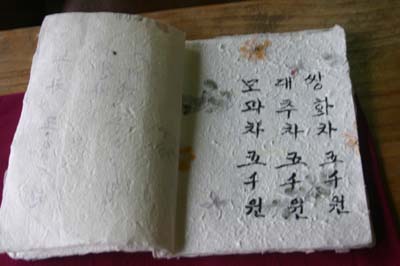 쌍화차 五千원
대추차 五千원
모과차 五千원